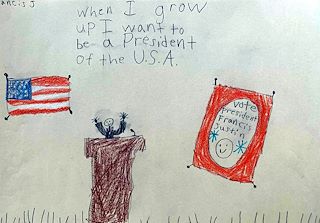 ancis J
When I grow
up I want to
be a President
of the U.S.A.
vote
president
Francis
Justin